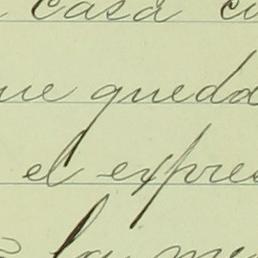 casa
que queda
el expres
la